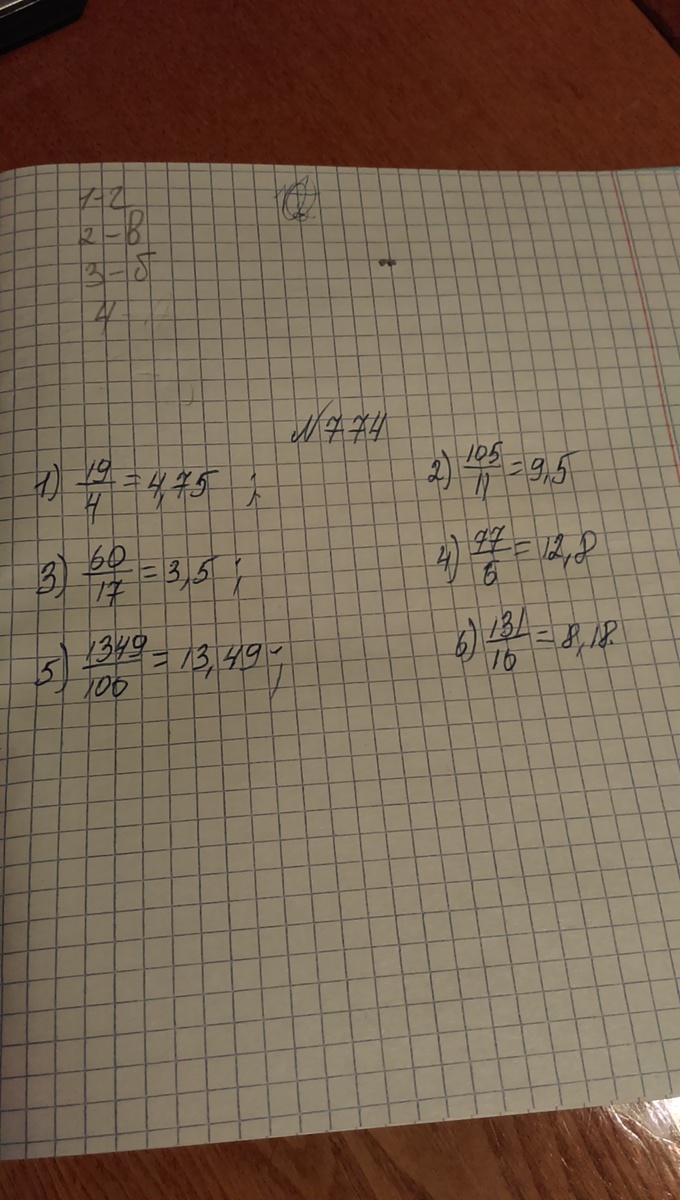 1-г
2-в
3-б
4-
№774
1) 19/4 = 4,75 ; 2) 105/11 = 9,5
3) 60/17 = 3,5 ; 4) 77/6 = 12,8
5) 1349/100 = 13,49 ; 6) 131/16 = 8,18.